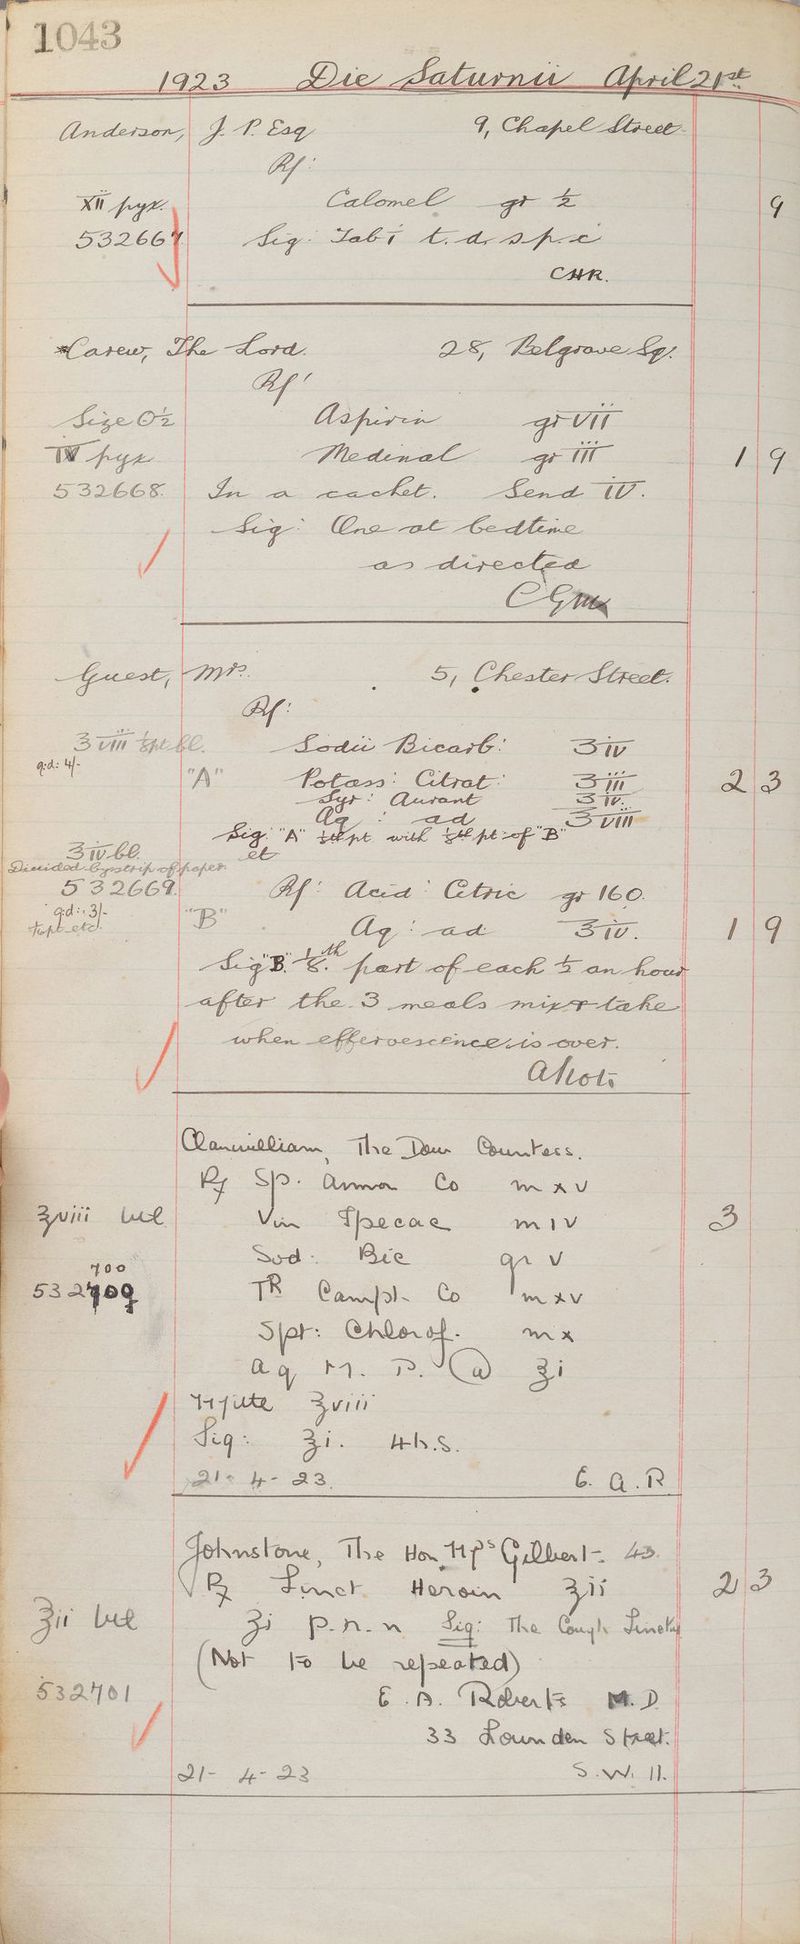 1043
1923 Die Saturnii April 21st
Anderson, J. P. Esq 9, Chapel Street
Rx:
XII pyx. Calomel gr ½ 9
532667 Sig: Tab i t. d. s p. c
CHR.
*Carew, The Lord. 28, Belgrave Sq.
Rx
Size 0½ Aspirin gr VII
IV pyx Medinal gr III 1 9
532668. In a cachet. Send IV.
Sig: One at bedtime
as directed
CGM
Guest, Mrs. 5, Chester Street.
Rx:
ʒviii ⅛pt bl. Sodii Bicarb: ʒiv
q:d: 4/-
"A" Potass: Citrat: ʒiii 2 3
Syr: Aurant ʒiv.
Aq: ad ʒviii
Sig. "A" ⅛th pt with ⅛th pt of "B"
ʒiv bl. et
Divided by strip of paper
532669. Rx: Acid: Citric gr 160.
q:d:. 3/-
"B" Aq: ad ʒiv. 1 9
tapt etc
Sig "B". ⅛th part of each ½ an hour
after the 3 meals mix & take
when effervescence is over.
Clanwilliam, The Dow Countess.
Rx Sp. Ammon Co m xv
ʒviii btl Vin Ipecac m iv 3
Sod: Bic gr v
700
532709 TR Camph Co m xv
Spt: Chlorof. m x
Aq M. P. @ ʒi
Mitte ʒviii
Sig: ʒi. 4h.s.
21-4-23. E. A. R
Johnstone, The Hon Mrs Gilbert. 43.
Rx Linct Heroin ʒii 2 3
ʒii btl ʒi p.r.n Sig: The Cough Linctus
(Not to be repeated)
532701 E. A. Roberts M.D.
33 Lownden Street.
21-4-23 S.W. 11.